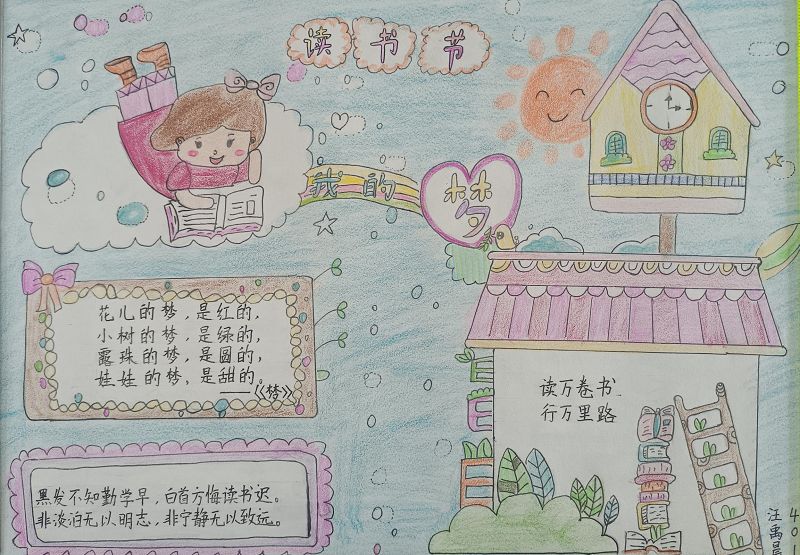 读书节
我的梦
花儿的梦，是红的，
小树的梦，是绿的，
露珠的梦，是圆的，
娃娃的梦，是甜的。
——《梦》
黑发不知勤学早，白首方悔读书迟。
非淡泊无以明志，非宁静无以致远。
读万卷书
行万里路
401
汪禹